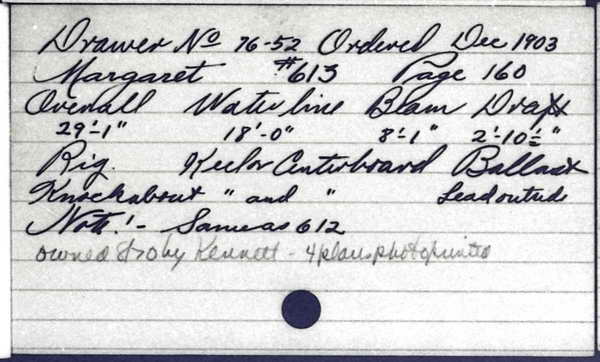 Drawer No 76-52 Ordered Dec 1903
Margaret #613 Page 160
Overall Water line Beam Draft
29'-1" 18'-0" 8'-1" 2'-10½"
Rig. Keel or Centerboard Ballast
Knockabout " and " Lead outside
Note! - Same as 612
owned by Kennett - 4 plans photoprinted